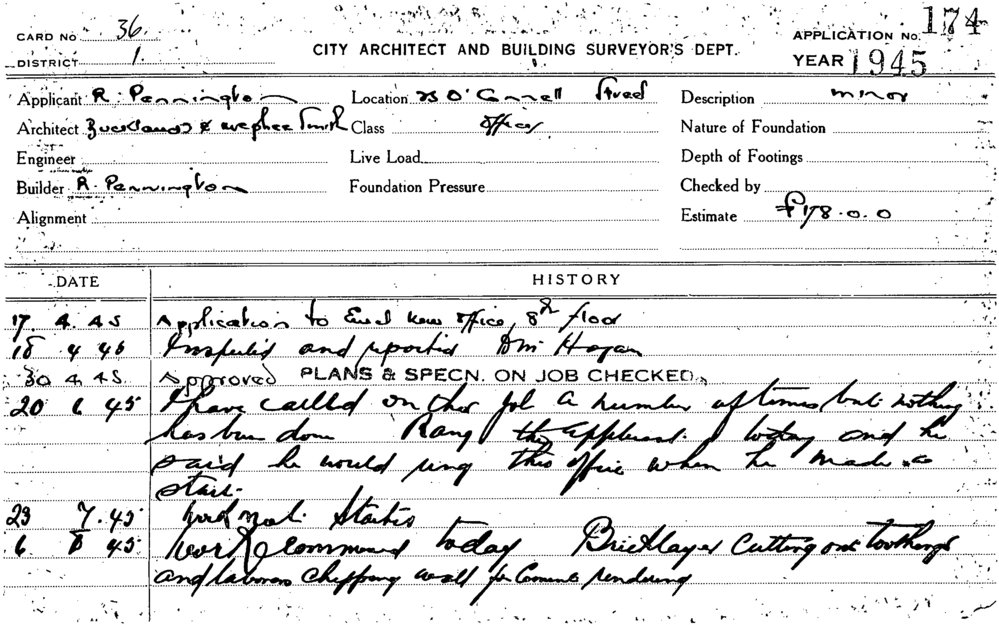 CARD No 36.
APPLICATION No. 174
CITY ARCHITECT AND BUILDING SURVEYOR'S DEPT.
DISTRICT 1.
YEAR 1945
Applicant R. Pennington
Location O'Connell Street
Description minor
Architect & Smith
Class Offices
Nature of Foundation
Engineer
Live Load
Depth of Footings
Builder R. Pennington
Foundation Pressure
Checked by
Alignment
Estimate £178.0.0
DATE
HISTORY
17. 4. 45 Application to Erect New Office, 8th floor
18 4 45 Inspected and reported Hogan
30 4 45 Approved PLANS & SPECN. ON JOB CHECKED.
20 6 45 I have called on this job a number of times but nothing
has been done Rang the applicant today and he
said he would ring this office when he made a
start.
23 7. 45 Work not started
6 8 45 Work commenced today Bricklayer cutting out toothings
and laborers chipping wall for cement rendering